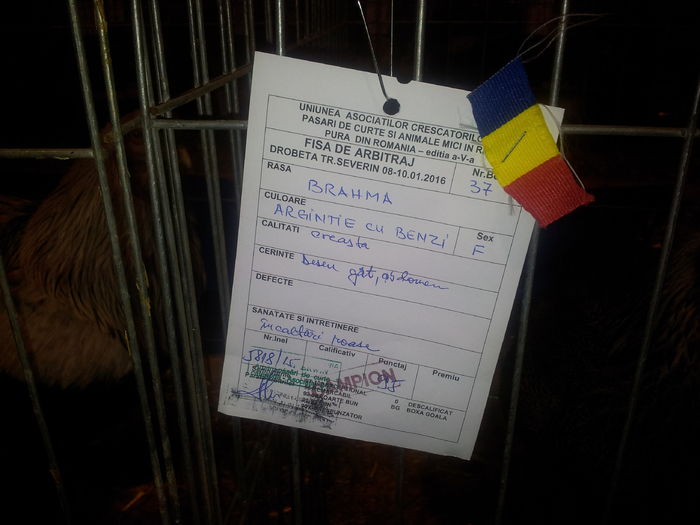 UNIUNEA ASOCIATIILOR CRESCATORILOR
PASARI DE CURTE SI ANIMALE MICI IN
PURA DIN ROMANIA – editia a-V-a
FISA DE ARBITRAJ
DROBETA TR.SEVERIN 08-10.01.2016
RASA
BRAHMA
37
CULOARE
ARGINTIE CU BENZI
Sex
F
CALITATI
creasta
CERINTE
Desen gât, abdomen
DEFECTE
SANATATE SI INTRETINERE
încaltări roase
Nr.Inel
Calificativ
Punctaj
Premiu
5818/15
DESCALIFICAT
BG BOXA GOALA